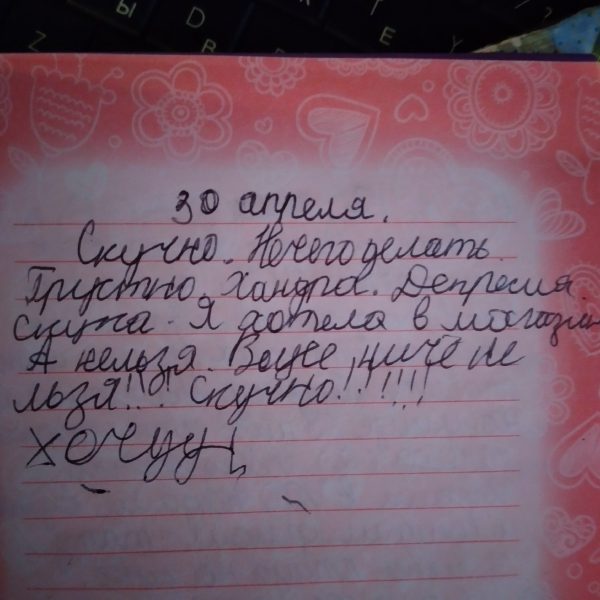 Ы
D
В
Z
E
Y
30 апреля.
Скучно. Нечего делать.
Грустно. Хандра. Депресия
скука. Я хотела в магазин
А нельзя. Воще ниче не
льзя!!?! Скучно!!!!!!!
хочуу